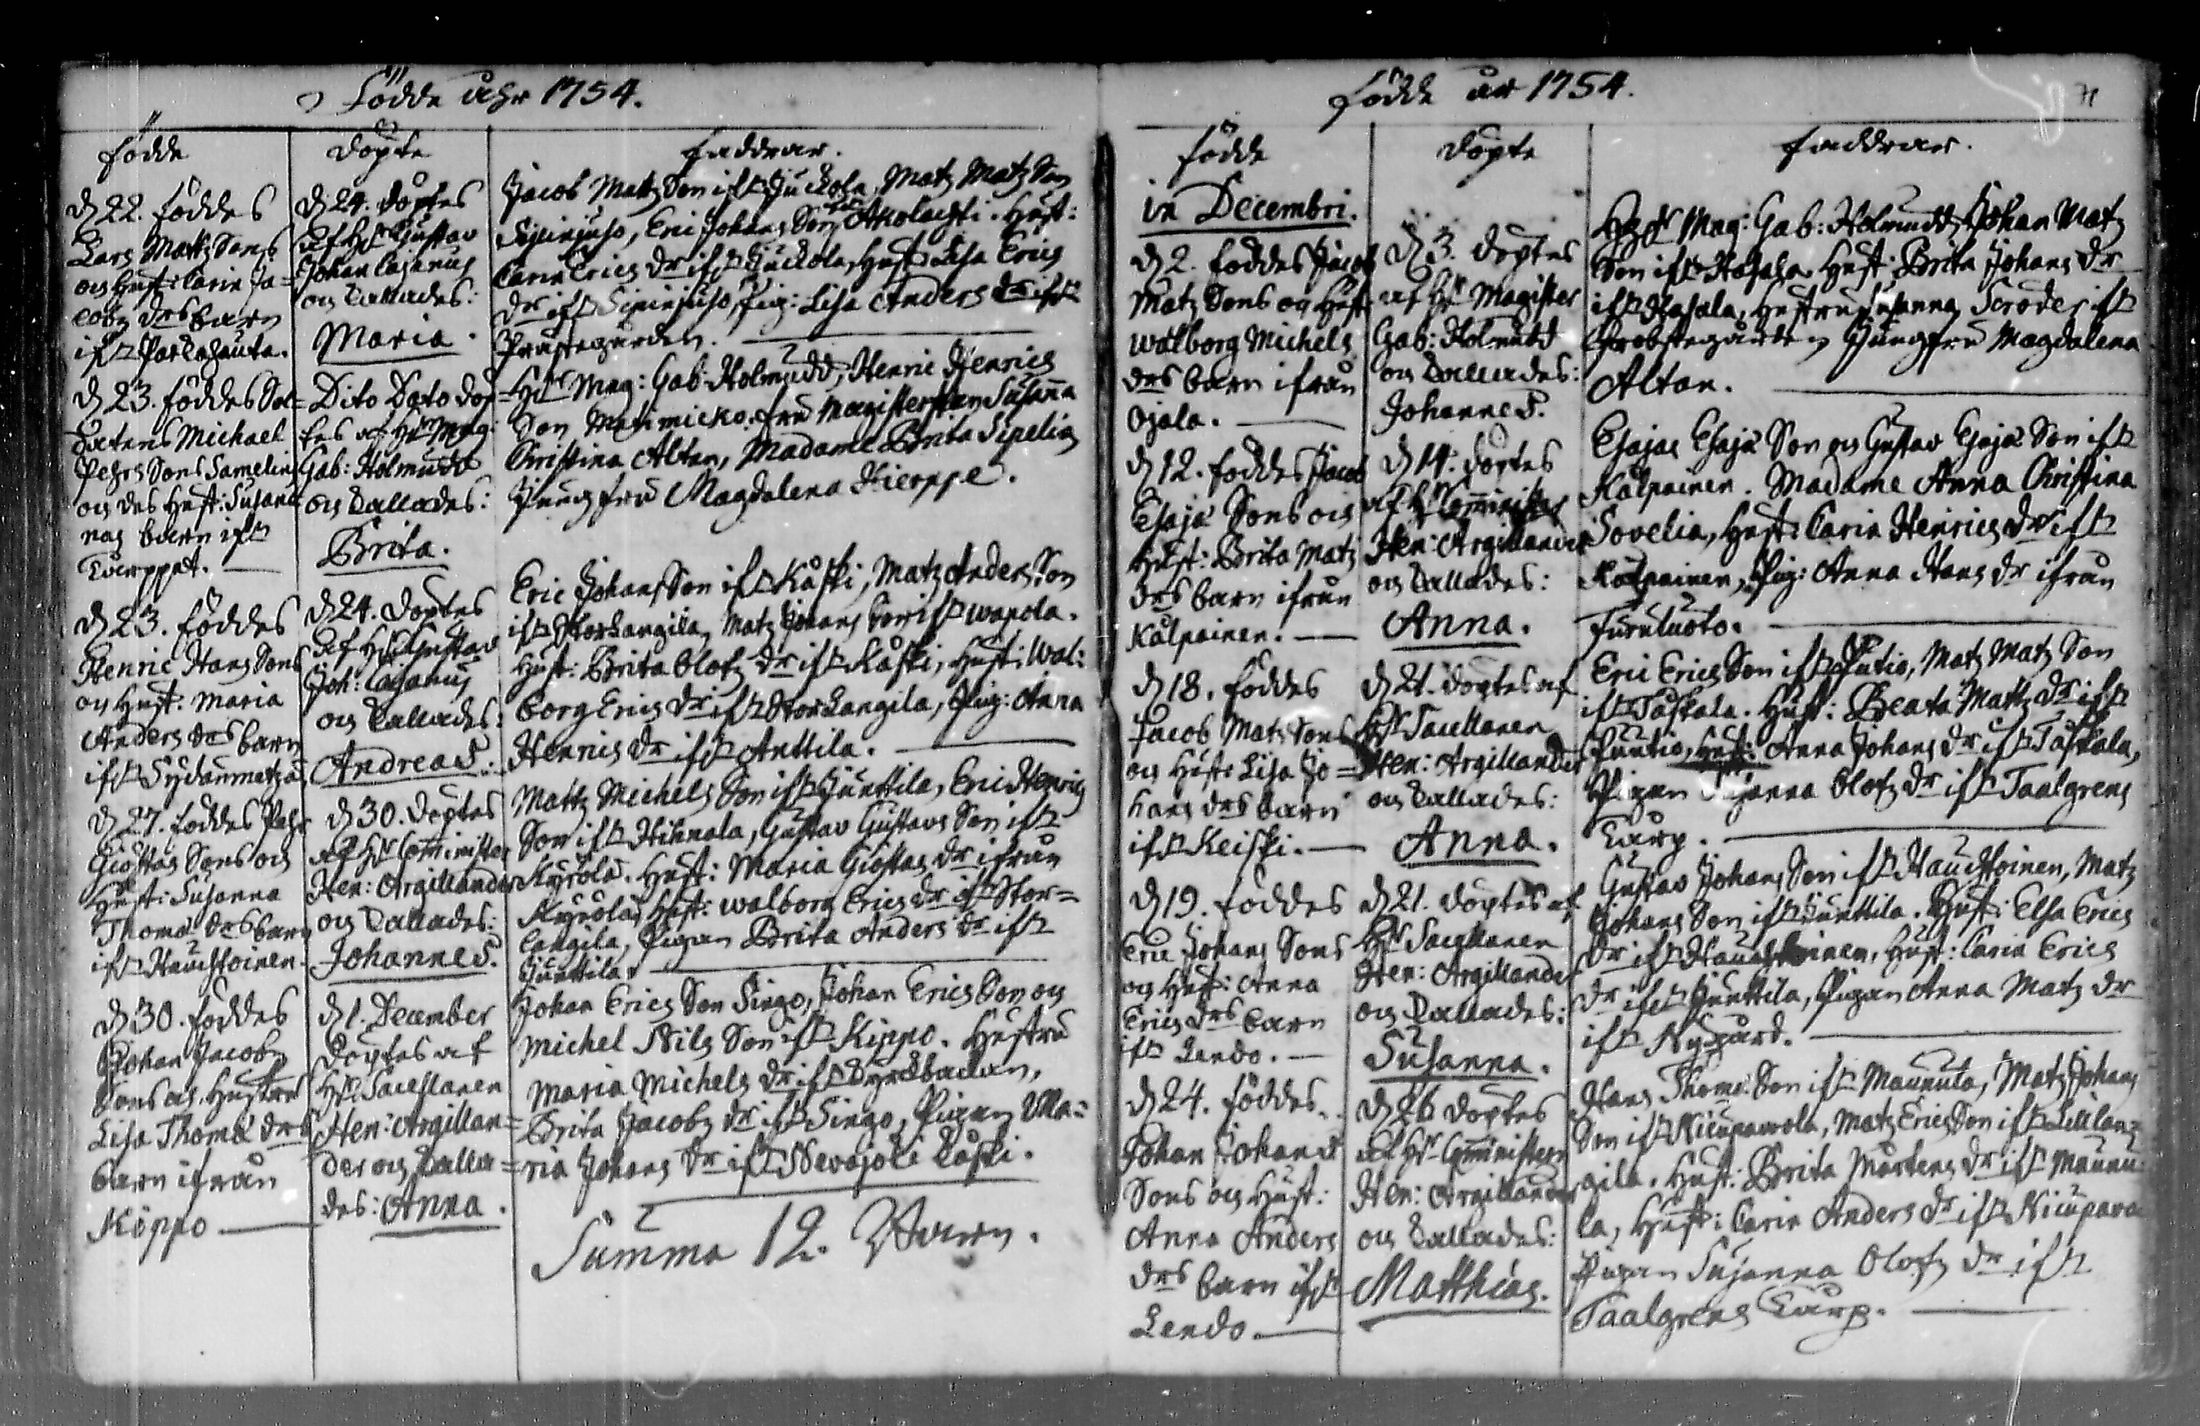 Födde åhr 1754.
Födde
Döpte
Faddrar.
d 22. föddes
Lars Mattz Sons
och Hust: Carin Ja-
cobz drs barn
ifr Parkahauta.
d 24. döptes
af Hr Gustav
Johan Cajanus
och kallades:
Maria.
Jacob Mattz Son ifr Juckola, Matz Matz Son
Sipinjuso, Eric Johans Son Akolachti. Hust:
Carin Erics dr ifr Juckola, Hust: Lisa Erics
dr ifr Sipinjuso, Pig: Lisa Anders dr ifr
Prästegården.
d 23. föddes Sol-
datens Michael
Pehrs Sons Samelins
och des Hust: Susan-
nas barn ifr
Dito Dato döp-
tes af Hr Mag:
Gab: Holmudd
och kallades:
Brita.
Hr Mag: Gab: Holmudd, Henric Henrics
Son Matimicko. fru Magisterskan Susanna
Christina Altan, Madame Brita Sipelia
Jungfru Magdalena Kierppe.
d 23. föddes
Henric Hans Sons
och Hust: Maria
Anders drs barn
ifr Sydänmetzä
d 24. döptes
af Hr Gustav
Joh: Cajanus
och kallades:
Andreas.
Eric Johans Son ifr Kåski, Matz Anders Son
ifr Storlangila, Matz Johans Son ifr Wapola.
Hust: Brita Olofz dr ifr Kåski, Hust: Wal-
borg Erics dr ifr Storlangila, Pig: Anna
Henrics dr ifr Anttila.
d 27. föddes Pehr
Giöstas Sons och
Hust: Susanna
Thomæ drs barn
ifr Hauchtoinen.
d 30. döptes
af Hr Comminister
Hen: Argillander
och kallades:
Johannes.
Mattz Michels Son ifr Junttila, Eric Henrics
Son ifr Hihnala, Gustav Gustavs Son ifr
Kyrölä. Hust: Maria Giöstas dr ifrån
Kyrölä, Hust: Walborg Erics dr ifr Stor-
langila, Pigan Brita Anders dr ifr
Junttila.
d 30. föddes
Johan Jacobz
Sons och Hustru
Lisa Thomæ drs
barn ifrån
Kippo
d 1. December
döptes af
Hr Sacellanen
Hen: Argillan-
der och kalla-
des: Anna.
Johan Erics Son Singo, Johan Erics Son och
Michel Nils Son ifr Kippo. Hustru
Maria Michels dr ifr Dyrckbackan,
Brita Jacobz dr ifr Singo, Pigan Ma-
ria Johans dr ifr Nevajoki Kåski.
Summa 12. Barn.
Födde år 1754.
71
Födde
Döpte
Faddrar.
in Decembri.
d 2. föddes Jacob
Matz Sons och Hust
Walborg Michels
drs barn ifrån
Ojala.
d 3. döptes
af Hr Magister
Gab: Holmudd
och kallades:
Johannes.
Hr Mag: Gab: Holmudd, Johan Matz
Son ifr Hasala. Hust: Brita Johans dr
ifr Hasala, Hustru Susanna Scrode, ifr
Probstegården, Jungfru Magdalena
Altan.
d 12. föddes Jacob
Esajæ Sons och
Hust: Brita Matz
drs barn ifrån
Kälpäinen.
d 14. döptes
af Hr Comminister
Hen: Argillander
och kallades:
Anna.
Esajas Esajæ Son och Gustav Esajæ Son ifr
Kälpäinen. Madame Anna Christina
Sovelia, Hust: Carin Henrics dr ifr
Kälpäinen, Pig: Anna Hans dr ifrån
Turuluoto.
d 18. föddes
Jacob Matz Sons
och Hust: Lisa Jo-
hans drs barn
ifr Keiski.
d 21. döptes af
Hr Sacellanen
Hen: Argillander
och kallades:
Anna.
Eric Erics Son ifr Puutio, Matz Matz Son
ifr Taskala. Hust: Beata Mattz dr ifr
Puutio, Hust: Anna Johans dr ifr Taskala,
Pigan Susanna Olofz dr ifr Taalgrens
Torp.
d 19. föddes
Eric Johans Sons
och Hust: Anna
Erics drs barn
ifr Lendo.
d 21. döptes af
Hr Sacellanen
Hen: Argillander
och kallades:
Susanna.
Gustav Johans Son ifr Hauchtoinen, Matz
Johans Son ifr Junttila. Hust: Elsa Erics
dr ifr Hauchtoinen, Hust: Carin Erics
dr ifr Junttila, Pigan Anna Matz dr
ifr Nygård.
d 24. föddes
Johan Johans
Sons och Hust:
Anna Anders
drs barn ifr
Lendo.
d 26 döptes
af Hr Comministern
Hen: Argillander
och kallades:
Matthias.
Hans Thomæ Son ifr Maunula, Matz Johans
Son ifr Nicuparola, Matz Erics Son ifr Lillan-
gila. Hust: Brita Mårtens dr ifr Maunu-
la, Hust: Carin Anders dr ifr
Pigan Susanna Olofz dr ifr
Taalgrens Torp.